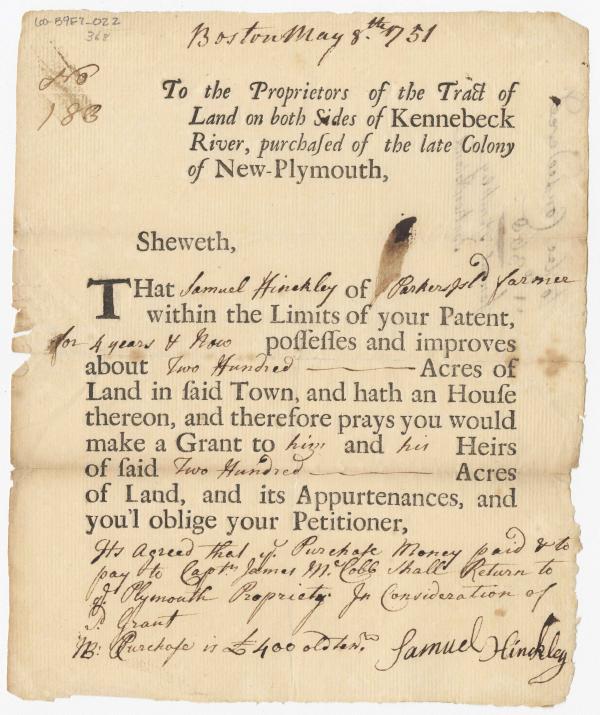 60-B9F7-022
368
Boston May 8.th 1751
No
183
To the Proprietors of the Tract of
Land on both Sides of Kennebeck
River, purchaſed of the late Colony
of New-Plymouth,
Sheweth,
THat Samuel Hinckley of Parkers Isld farmer
within the Limits of your Patent,
for 4 years & Now poſſeſſes and improves
about Two Hundred Acres of
Land in ſaid Town, and hath an Houſe
thereon, and therefore prays you would
make a Grant to him and his Heirs
of ſaid Two Hundred Acres
of Land, and its Appurtenances, and
you'l oblige your Petitioner,
Its Agreed that ye. Purchase Money paid & to
pay to Captn James McCobb Shall Return to
ye. Plymouth Propriety In Consideration of
sd. Grant
NB: Purchase is £400 old tenr. Samuel Hinckley